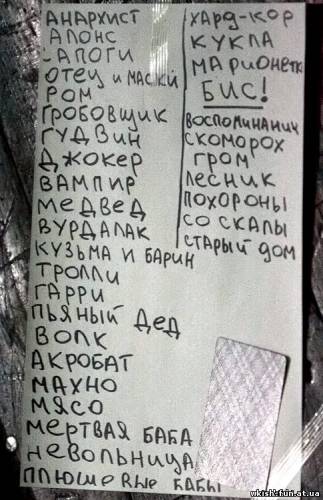 АНАРХИСТ
АПОНС
САПОГИ
ОТЕЦ И МАСКИ
РОМ
ГРОБОВЩИК
ГУДВИН
ДЖОКЕР
ВАМПИР
МЕДВЕД
ВУРДАЛАК
КУЗЬМА И БАРИН
ТРОЛЛИ
ГАРРИ
ПЬЯНЫЙ ДЕД
ВОЛК
АКРОБАТ
МАХНО
МЯСО
МЕРТВАЯ БАБА
НЕВОЛЬНИЦА
ПЛЮШЕВЫЕ БАБЫ
ХАРД-КОР
КУКЛА
МАРИОНЕТК
БИС!
ВОСПОМИНАНИЧ
СКОМОРОХ
ГРОМ
ЛЕСНИК
ПОХОРОНЫ
СО СКАЛЫ
СТАРЫЙ ДОМ
wkish-fun.at.ua